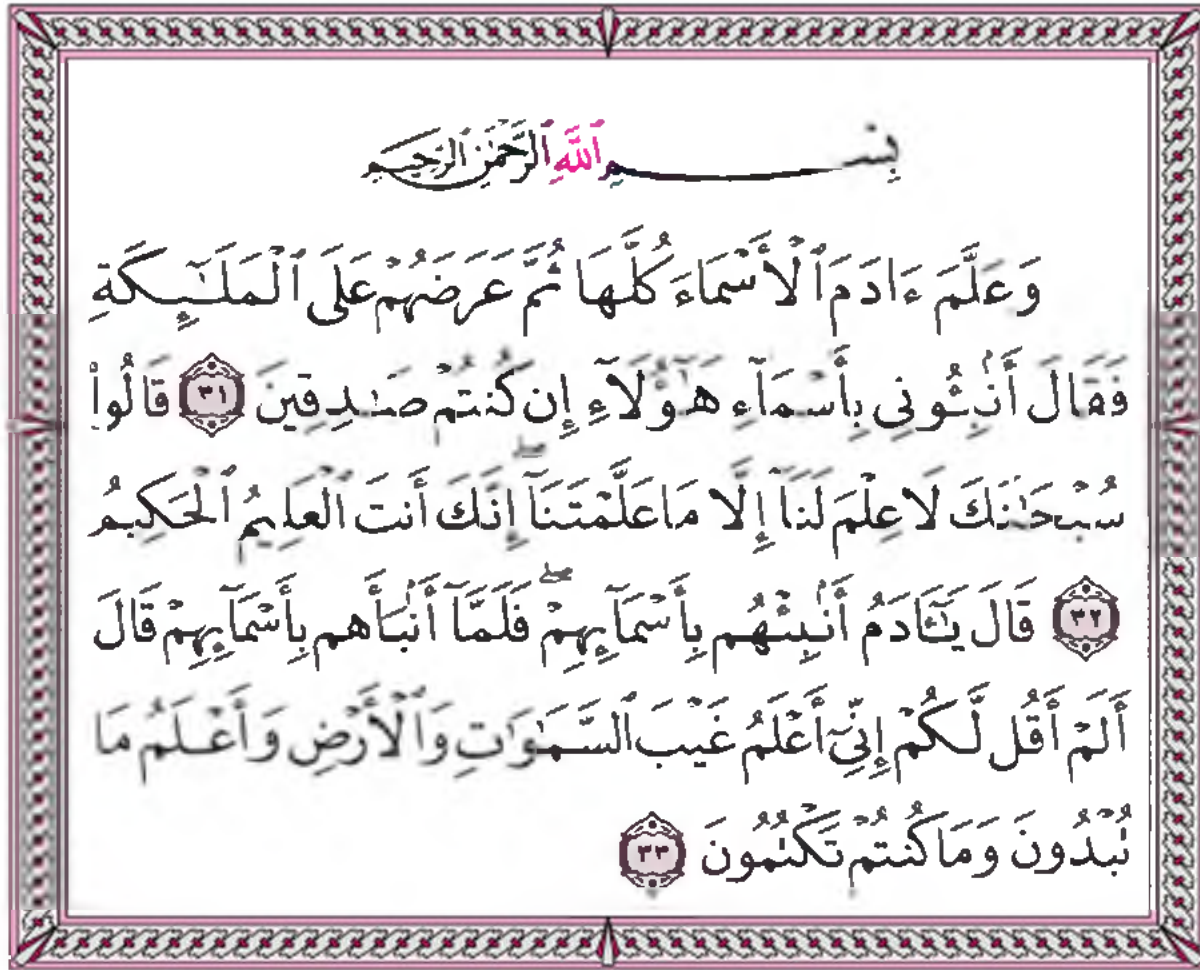 بِسْمِ ٱللَّهِ ٱلرَّحْمَٰنِ ٱلرَّحِيمِ
وَعَلَّمَ ءَادَمَ ٱلْأَسْمَاءَ كُلَّهَا ثُمَّ عَرَضَهُمْ عَلَى ٱلْمَلَٰٓئِكَةِ
فَقَالَ أَنۢبِـُٔونِى بِأَسْمَآءِ هَٰٓؤُلَآءِ إِن كُنتُمْ صَٰدِقِينَ ٣١ قَالُوا۟
سُبْحَٰنَكَ لَا عِلْمَ لَنَآ إِلَّا مَا عَلَّمْتَنَآ ۖ إِنَّكَ أَنتَ ٱلْعَلِيمُ ٱلْحَكِيمُ
٣٢ قَالَ يَٰٓـَٔادَمُ أَنۢبِئْهُم بِأَسْمَآئِهِمْ ۖ فَلَمَّآ أَنۢبَأَهُم بِأَسْمَآئِهِمْ قَالَ
أَلَمْ أَقُل لَّكُمْ إِنِّىٓ أَعْلَمُ غَيْبَ ٱلسَّمَٰوَٰتِ وَٱلْأَرْضِ وَأَعْلَمُ مَا
تُبْدُونَ وَمَا كُنتُمْ تَكْتُمُونَ ٣٣